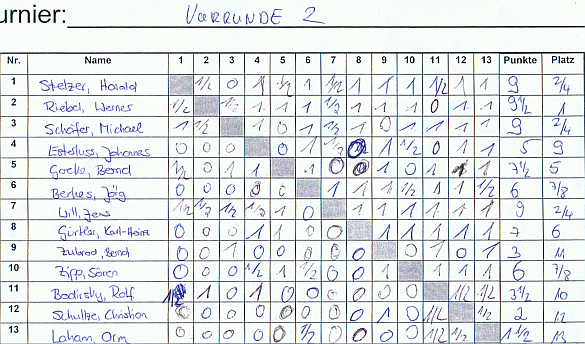 urnier: VORRUNDE 2
Nr. Name 1 2 3 4 5 6 7 8 9 10 11 12 13 Punkte Platz
1 Stelzer, Harald 1/2 0 1 1/2 1 1/2 1 1 1 1/2 1 1 9 2/4
2 Riebel, Werner 1/2 1/2 1 1 1 1/2 1 1 1 0 1 1 9 1/2 1
3 Schäfer, Michael 1 1/2 1 0 1 1/2 1 0 1 1 1 1 9 2/4
4 Johannes 0 0 0 0 1 1/2 0 1 1/2 0 1 1 5 9
5 Gocke, Bernd 1/2 0 1 1 1 0 0 1 0 1 1 1 7 1/2 5
6 Berkes, Jörg 0 0 0 0 0 1 1 1 1/2 1 1 1/2 6 7/8
7 Will, Jens 1/2 1/2 1/2 1/2 1 0 1 1 1 1 1 1 9 2/4
8 Gürtler, Karl-Heinz 0 0 0 1 1 0 0 1 1 1 1 1 7 6
9 Zubrod, Bernd 0 0 1 0 0 0 0 0 0 1 0 1 3 11
10 Zipp, Sören 0 0 0 1/2 1 1/2 0 0 1 1 1 1 6 7/8
11 Bodirsky, Rolf 1/2 1 0 1 0 0 0 0 0 0 1/2 1/2 3 1/2 10
12 Schultze, Christian 0 0 0 0 0 0 0 0 1 0 1/2 1/2 2 12
13 Laham, Orm 0 0 0 0 0 1/2 0 0 0 0 1/2 1/2 1 1/2 13